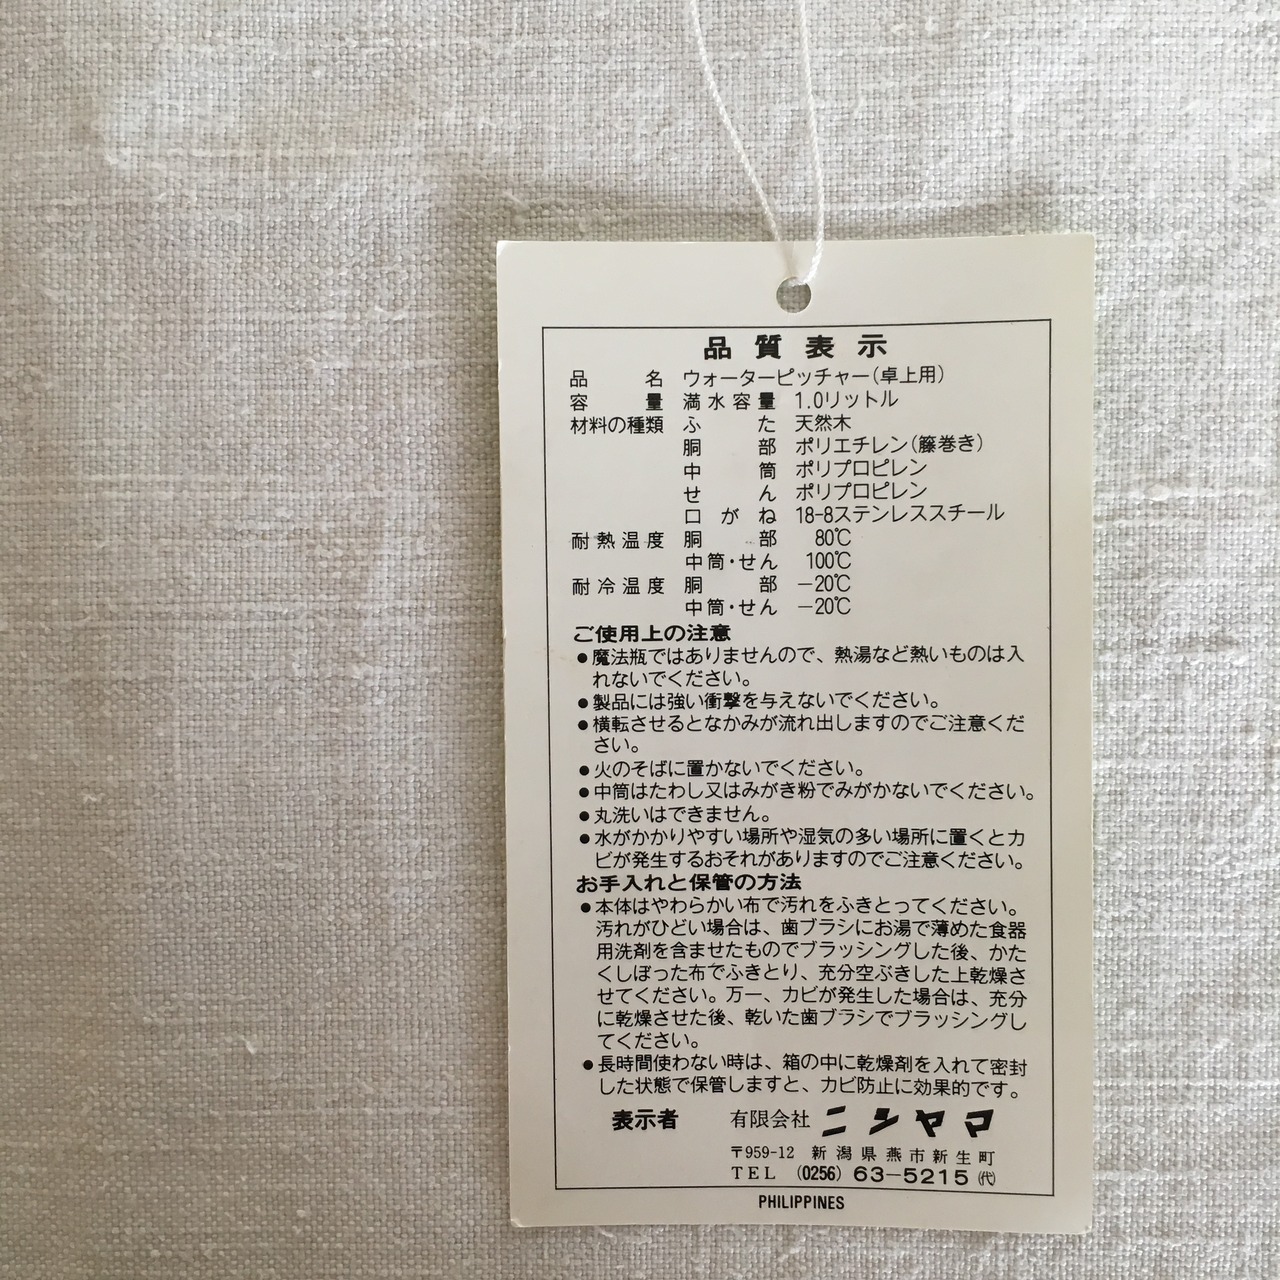 品質表示
品名 ウォーターピッチャー(卓上用)
容量 満水容量 1.0リットル
材料の種類 ふた 天然木
胴部 ポリエチレン(籐巻き)
中筒 ポリプロピレン
せん ポリプロピレン
口がね 18-8ステンレススチール
耐熱温度 胴部 80℃
中筒・せん 100℃
耐冷温度 胴部 −20℃
中筒・せん −20℃
ご使用上の注意
●魔法瓶ではありませんので、熱湯など熱いものは入
れないでください。
●製品には強い衝撃を与えないでください。
●横転させるとなかみが流れ出しますのでご注意くだ
さい。
●火のそばに置かないでください。
●中筒はたわし又はみがき粉でみがかないでください。
●丸洗いはできません。
●水がかかりやすい場所や湿気の多い場所に置くとカ
ビが発生するおそれがありますのでご注意ください。
お手入れと保管の方法
●本体はやわらかい布で汚れをふきとってください。
汚れがひどい場合は、歯ブラシにお湯で薄めた食器
用洗剤を含ませたものでブラッシングした後、かた
くしぼった布でふきとり、充分空ぶきした上乾燥さ
せてください。万一、カビが発生した場合は、充分
に乾燥させた後、乾いた歯ブラシでブラッシングし
てください。
●長時間使わない時は、箱の中に乾燥剤を入れて密封
した状態で保管しますと、カビ防止に効果的です。
表示者 有限会社 ニシヤマ
〒959-12 新潟県燕市新生町
TEL (0256) 63−5215 ㈹
PHILIPPINES